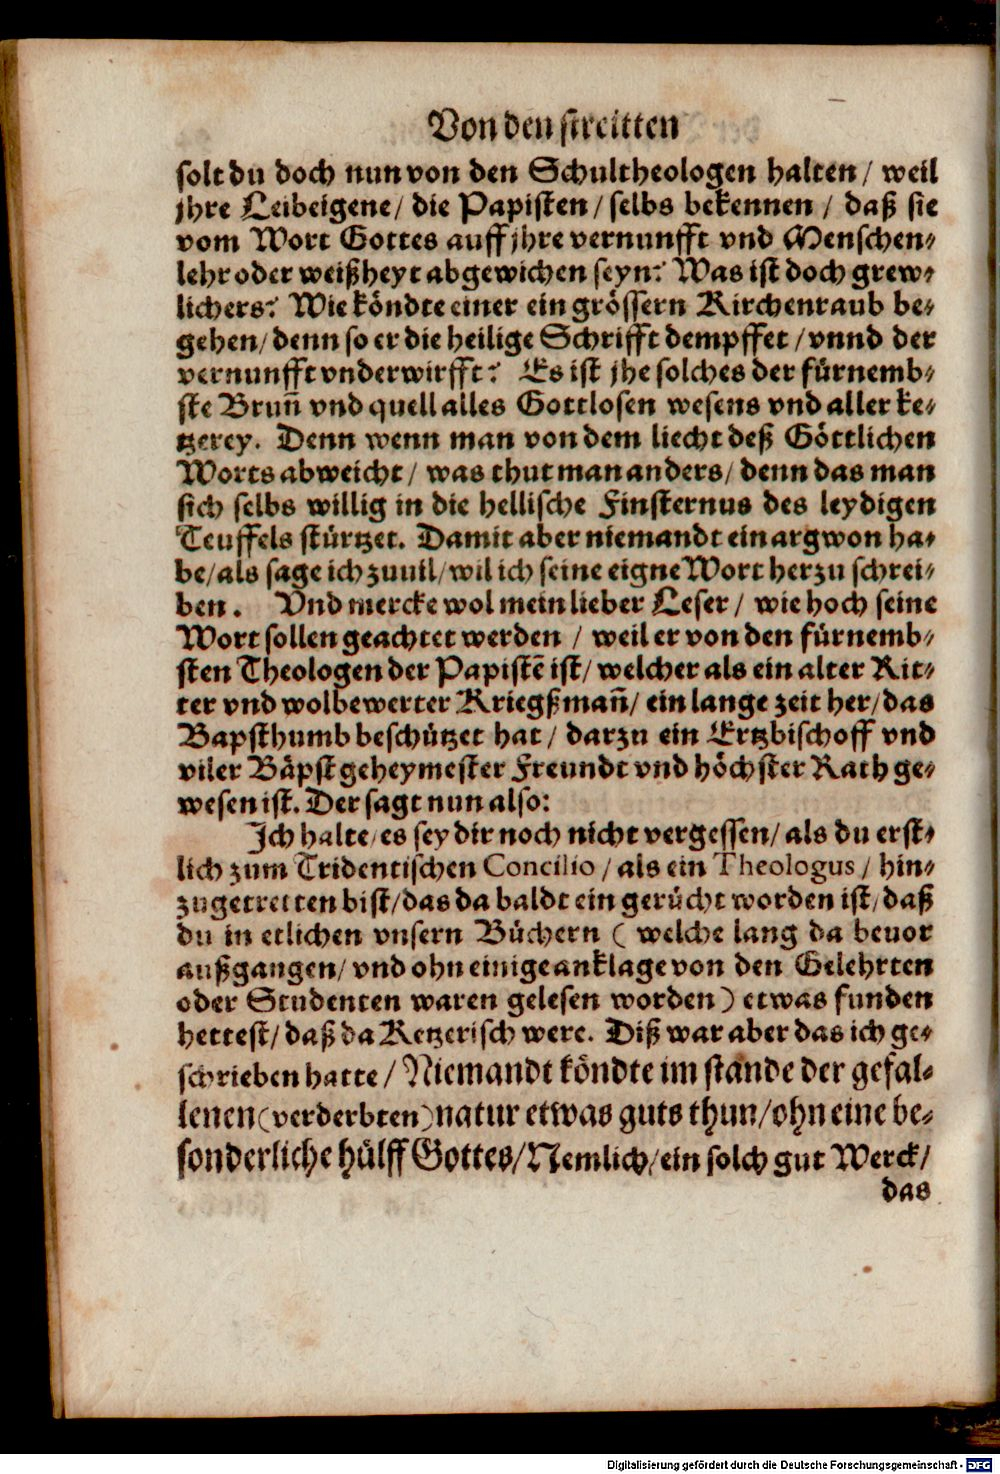 Von den streitten
solt du doch nun von den Schultheologen halten / weil
jhre Leibeigene / die Papisten / selbs bekennen / daß sie
vom Wort Gottes auff jhre vernunfft vnd Menschen-
lehr oder weißheyt abgewichen seyn? Was ist doch grew-
lichers? Wie köndte einer ein grössern Kirchenraub be-
gehen / denn so er die heilige Schrifft dempffet / vnnd der
vernunfft vnderwirfft? Es ist jhe solches der fürnemb-
ste Brun̄ vnd quell alles Gottlosen wesens vnd aller ke-
tzerey. Denn wenn man von dem liecht deß Göttlichen
Worts abweicht / was thut man anders / denn das man
sich selbs willig in die hellische Finsternus des leydigen
Teuffels stürtzet. Damit aber niemandt ein argwon ha-
be / als sage ich zuuil / wil ich seine eigne Wort herzu schrei-
ben. Vnd mercke wol mein lieber Leser / wie hoch seine
Wort sollen geachtet werden / weil er von den fürnemb-
sten Theologen der Papistē ist / welcher als ein alter Rit-
ter vnd wolbewerter Kriegßman̄ / ein lange zeit her / das
Bapsthumb beschützet hat / darzu ein Ertzbischoff vnd
viler Bäpst geheymester Freundt vnd höchster Rath ge-
wesen ist. Der sagt nun also:
Ich halte / es sey dir noch nicht vergessen / als du erst-
lich zum Tridentischen Concilio / als ein Theologus / hin-
zugetretten bist / das da baldt ein gerücht worden ist / daß
du in etlichen vnsern Büchern ( welche lang da beuor
außgangen / vnd ohn einige anklage von den Gelehrten
oder Studenten waren gelesen worden ) etwas funden
hettest / daß da Ketzerisch were. Diß war aber das ich ge-
schrieben hatte / Niemandt köndte im stande der gefal-
lenen (verderbten) natur etwas guts thun / ohn eine be-
sonderliche hülff Gottes / Nemlich / ein solch gut Werck /
das
Digitalisierung gefördert durch die Deutsche Forschungsgemeinschaft - DFG